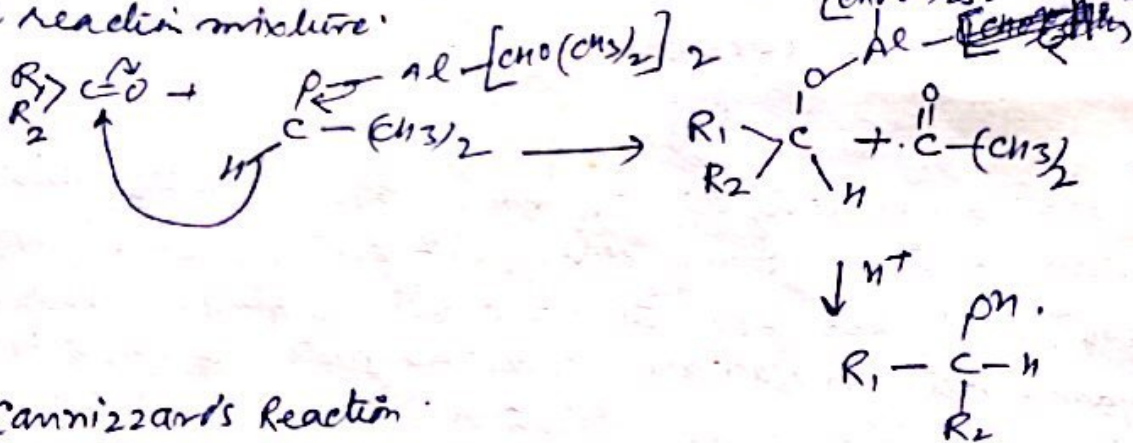 reaction mixture.
R1 R2 > C=O + H C O Al-[CHO(CH3)2]2 -(CH3)2 ⟶ R1 R2 C H O Al + O C-(CH3)2
↓ H+
OH.
R1 - C - H
R2
Cannizzaro's Reaction.